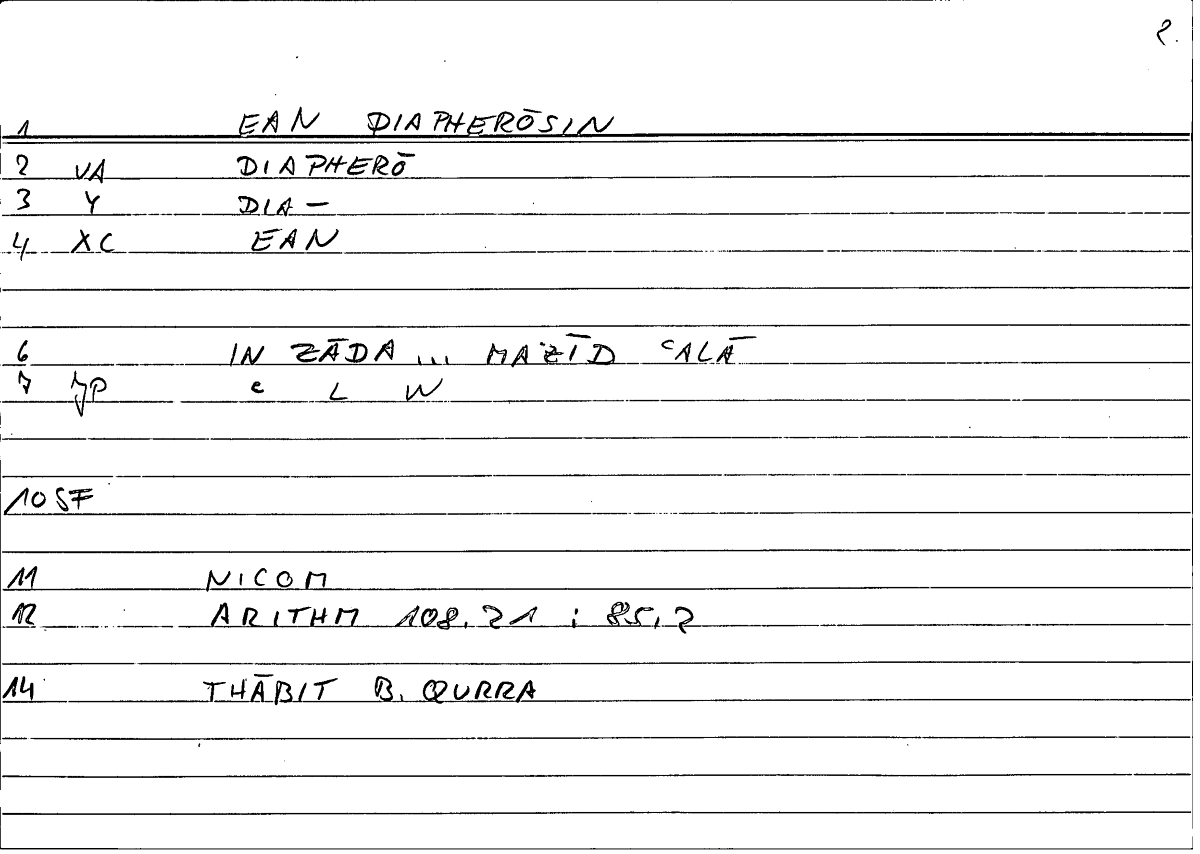 2.
1 EAN DIAPHERŌSIN
2 VA DIAPHERŌ
3 Y DIA-
4 XC EAN
6 IN ZĀDA ... MAZĪD ᶜALĀ
7 JP ᶜ L W
10 SF
11 NICOM
12 ARITHM 108.21 ; 85.2
14 THĀBIT B. QURRA